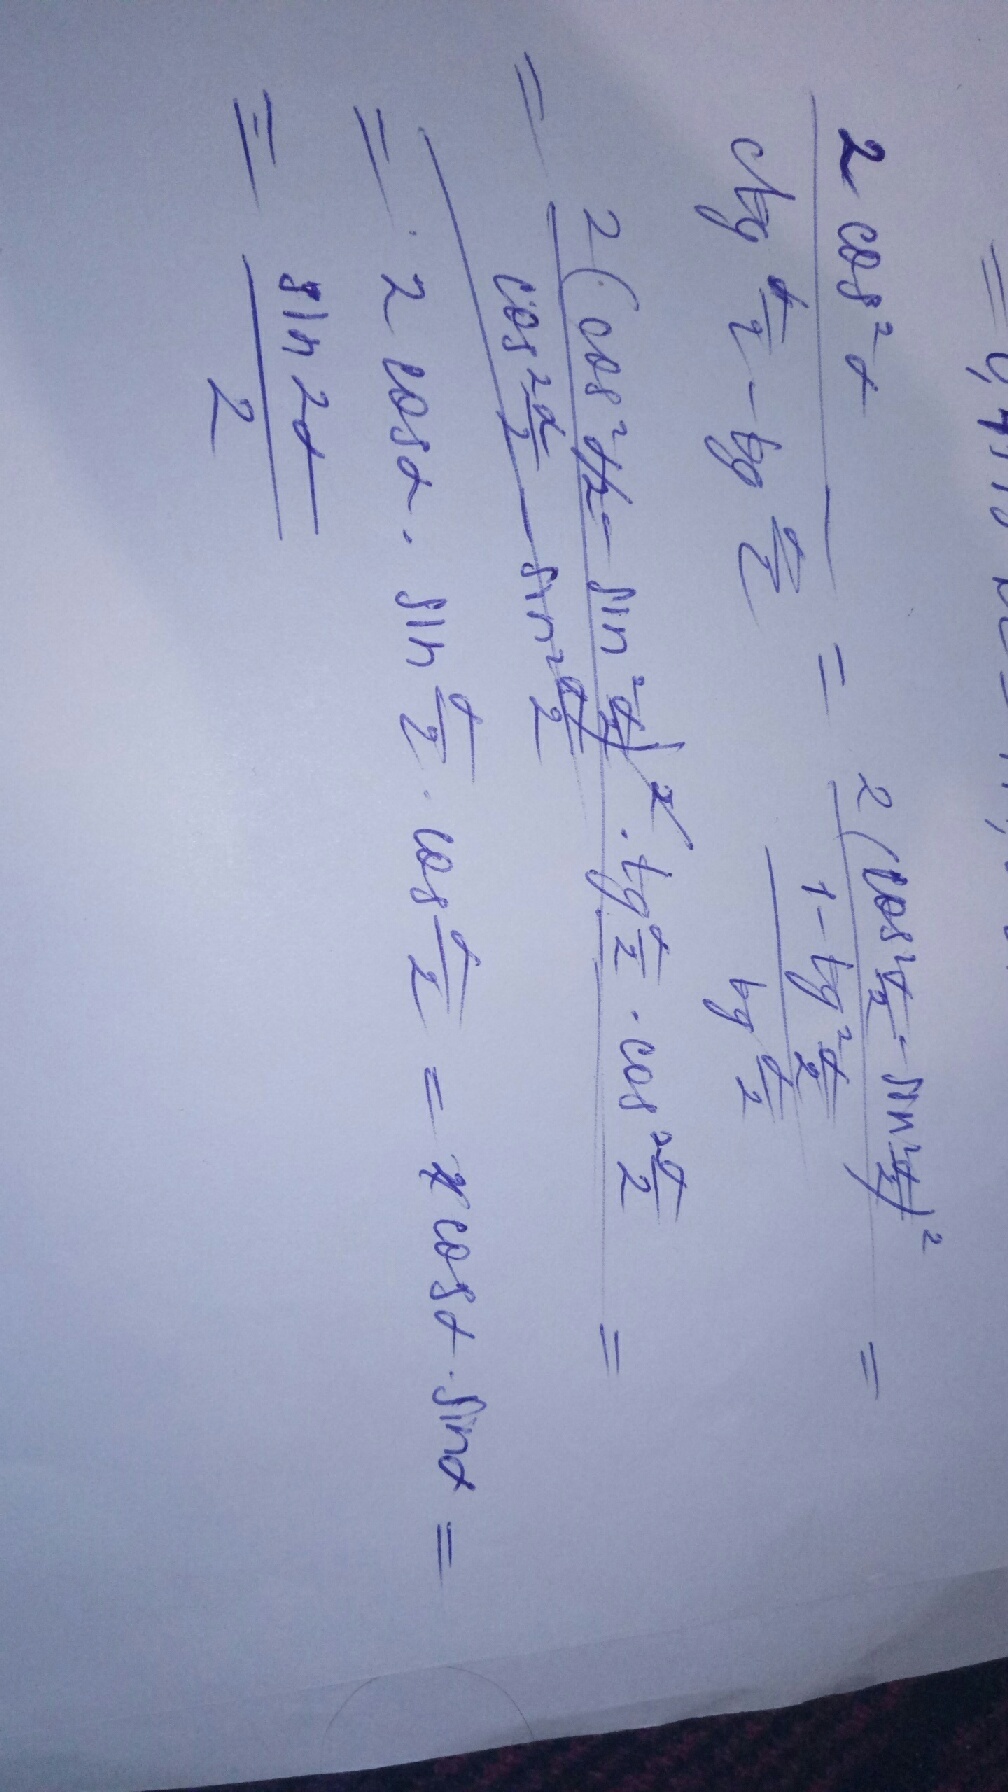 2 cos² α / (ctg α/2 - tg α/2) = 2 (cos² α/2 - sin² α/2)² / ((1 - tg² α/2) / tg α/2) =
= 2 (cos² α/2 - sin² α/2)² · tg α/2 · cos² α/2 / (cos² α/2 - sin² α/2) =
= 2 cos α · sin α/2 · cos α/2 = cos α · sin α =
= sin 2α / 2